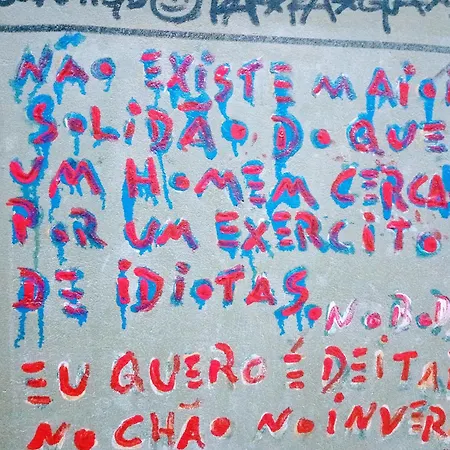 NÃO EXISTE MAIOR
SOLIDÃO DO QUE
UM HOMEM CERCA
POR UM EXERCITO
DE IDIOTAS.
NOBOD
EU QUERO É DEITAR
NO CHÃO NO INVER